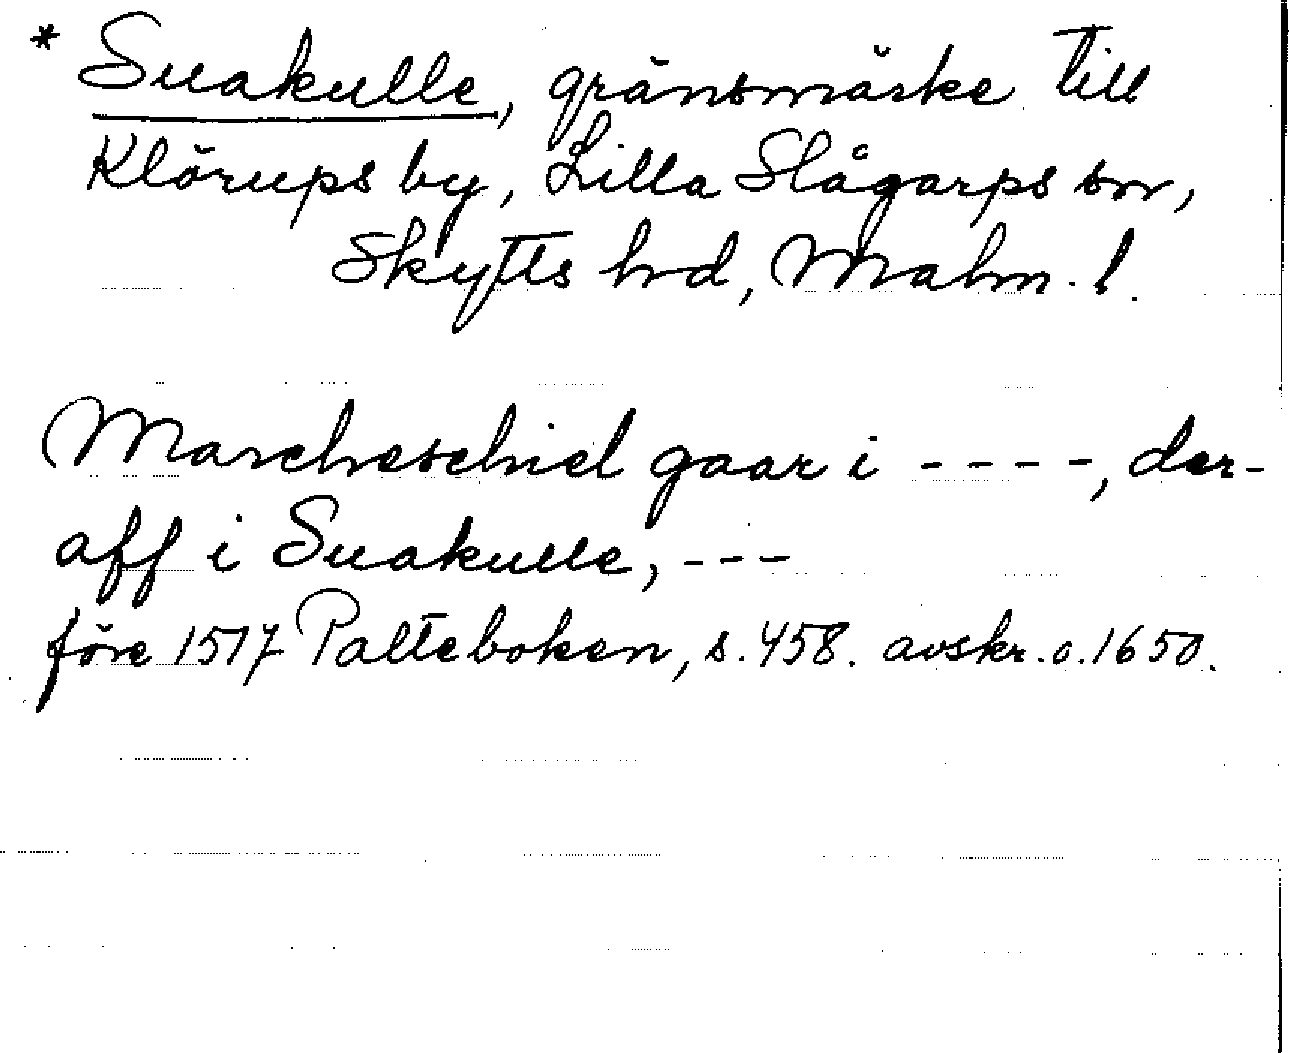 * Suakulle, gränsmärke till
Klörups by, Lilla Slågarps sn,
Skytts hd, Malm. l.
Marcheschiel gaar i ----, der-
aff i Suakulle, ---
före 1517 Palteboken, s. 458. avskr. o. 1650.